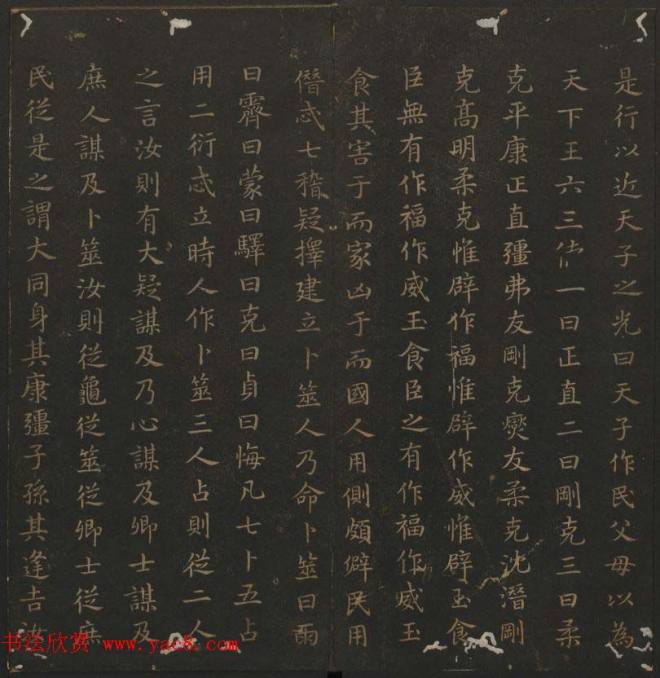 是行以近天子之光曰天子作民父母以為
天下王六三德一曰正直二曰剛克三曰柔
克平康正直彊弗友剛克燮友柔克沈潛剛
克高明柔克惟辟作福惟辟作威惟辟玉食
臣無有作福作威玉食臣之有作福作威玉
食其害于而家凶于而國人用側頗僻民用
僭忒七稽疑擇建立卜筮人乃命卜筮曰雨
曰霽曰蒙曰驛曰克曰貞曰悔凡七卜五占
用二衍忒立時人作卜筮三人占則從二人
之言汝則有大疑謀及乃心謀及卿士謀及
庶人謀及卜筮汝則從龜從筮從卿士從庶
民從是之謂大同身其康彊子孫其逢吉汝
书法欣赏 www.yac8.com